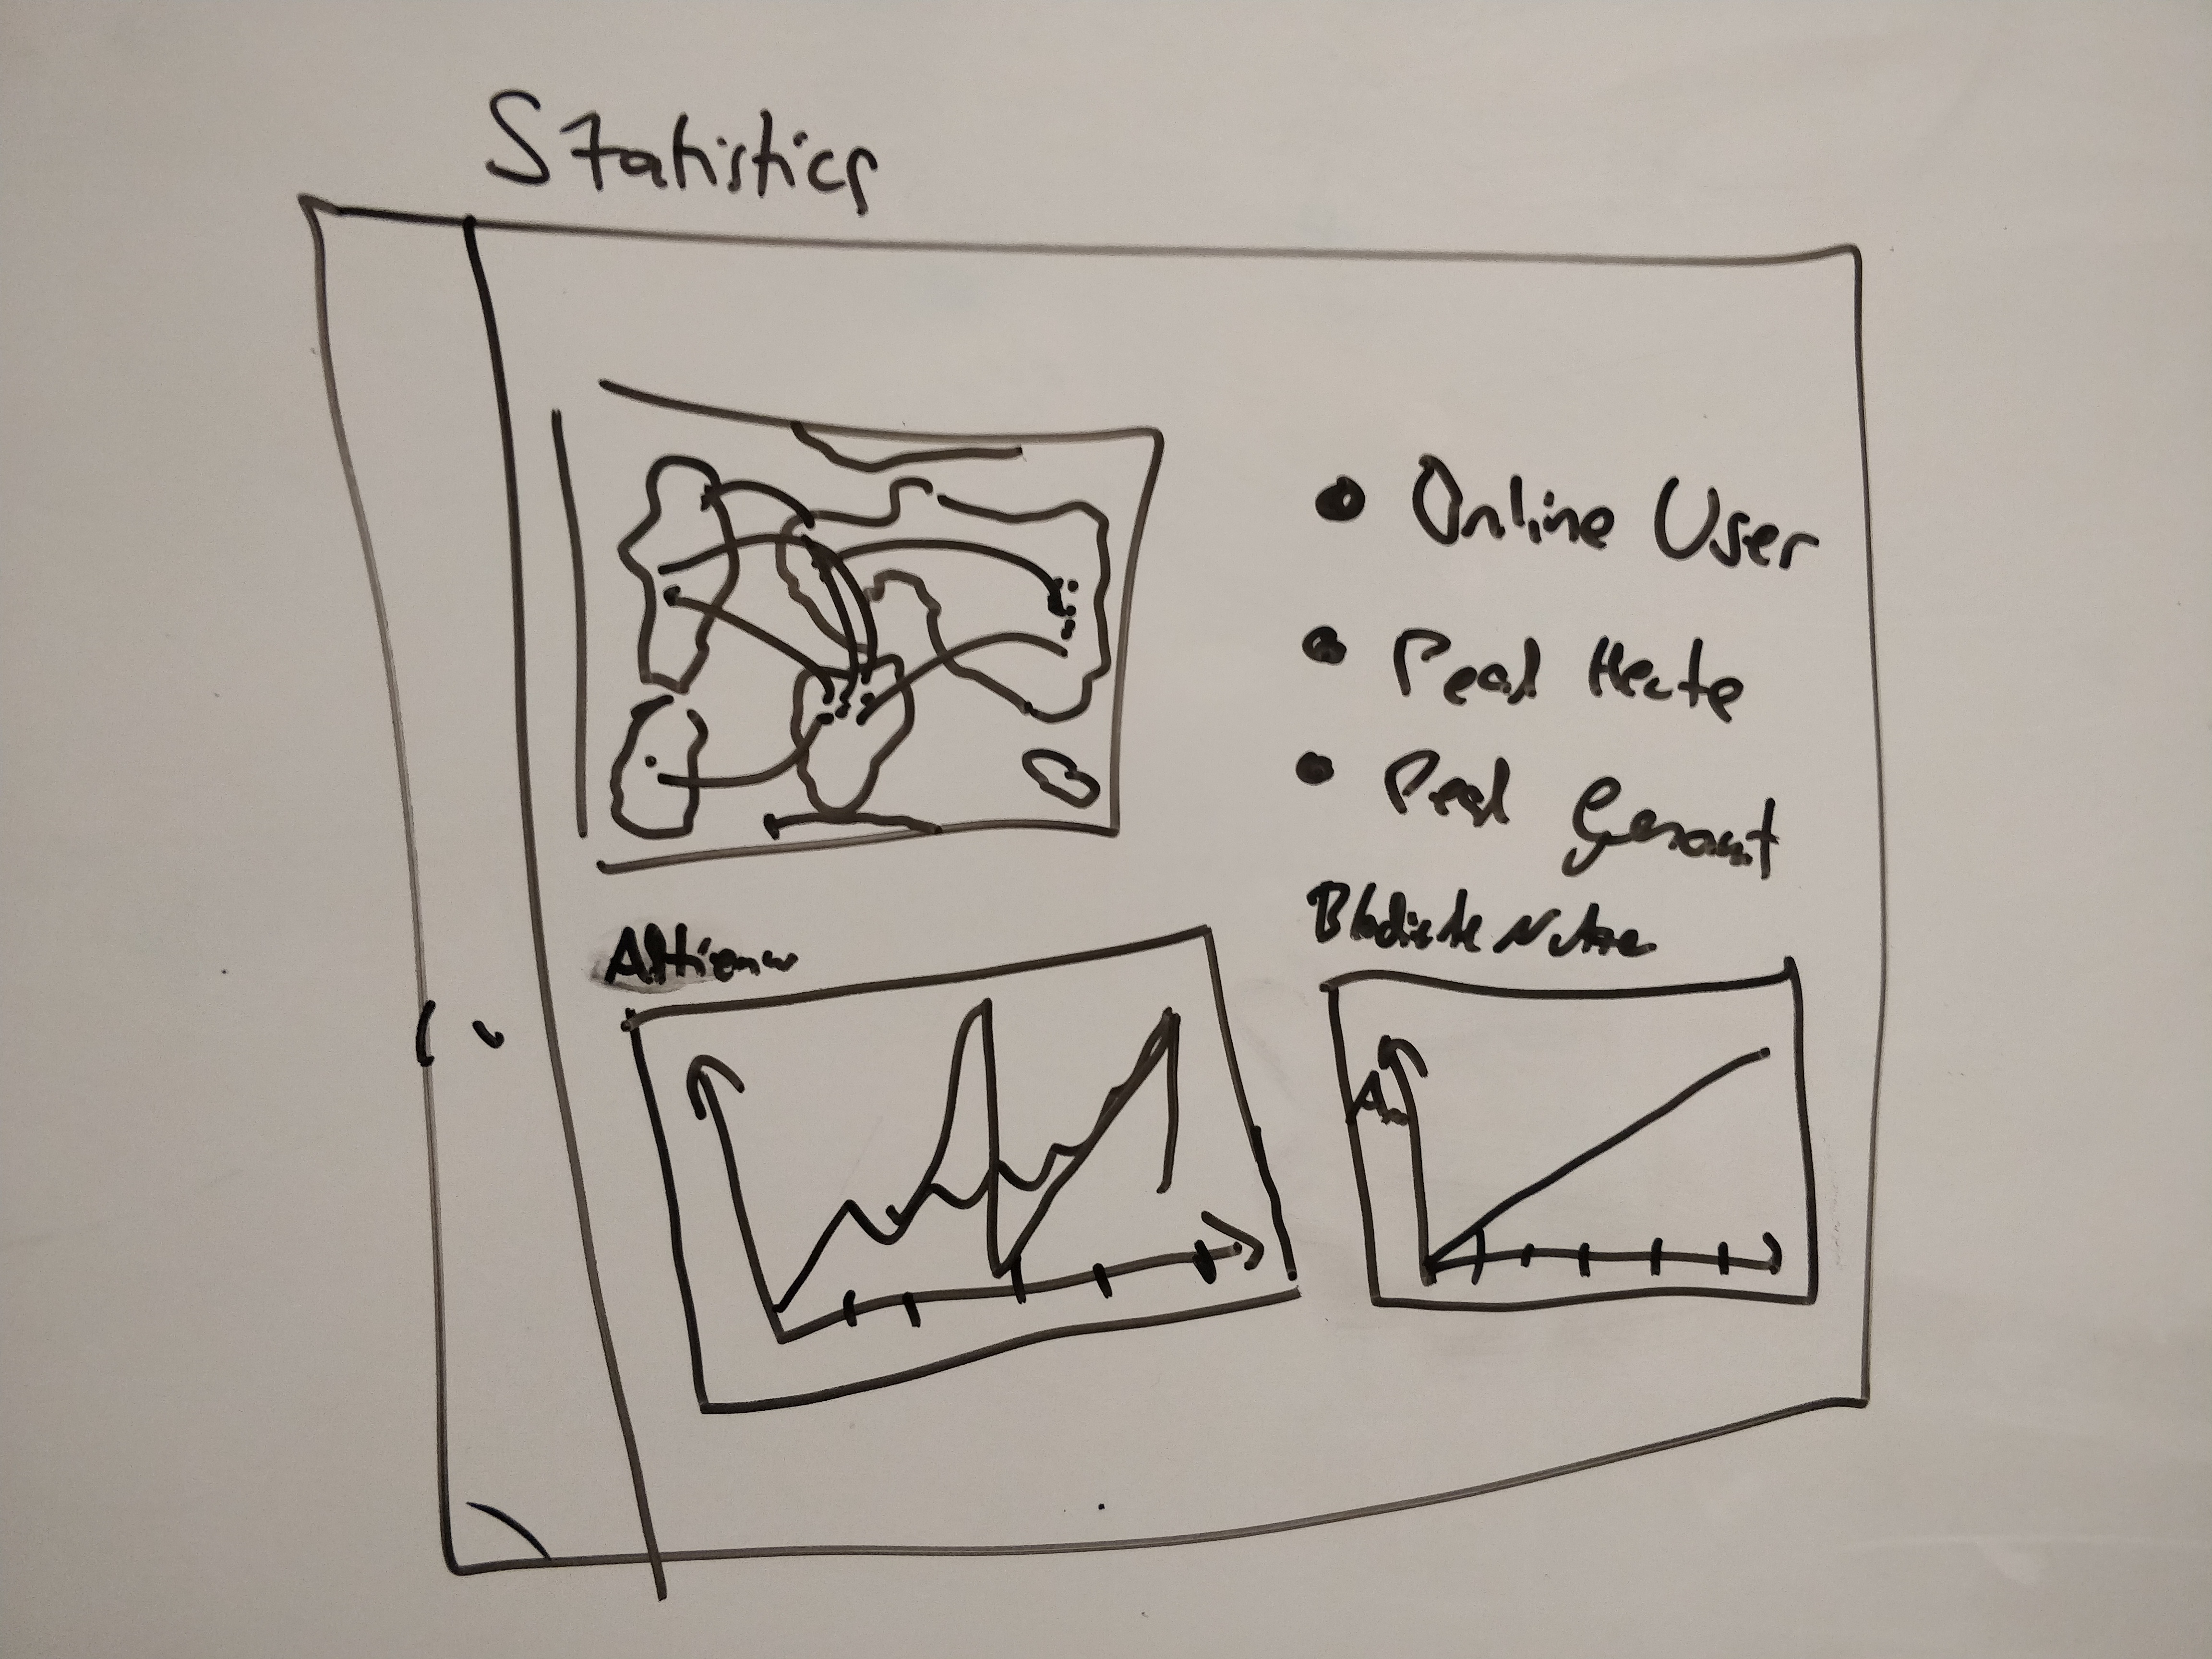 Statistics
Online User
Peak Heute
Peak Gesamt
Blockierte Nutzer
A